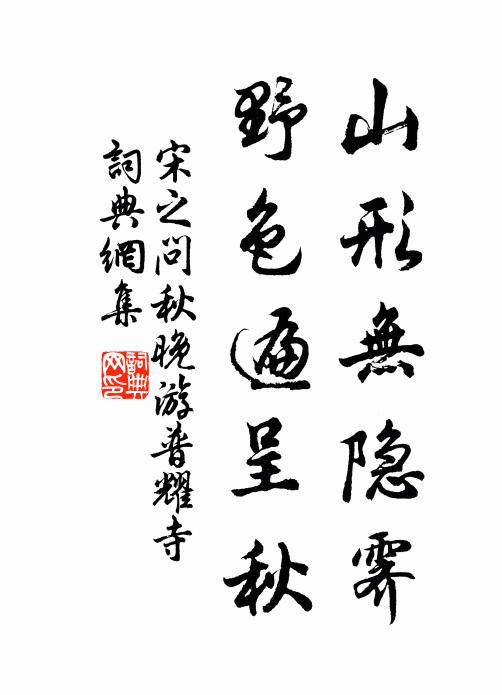 山形無隐霁
野色遍呈秋
宋之问秋晚游普耀寺
詞典網集
詞典網印